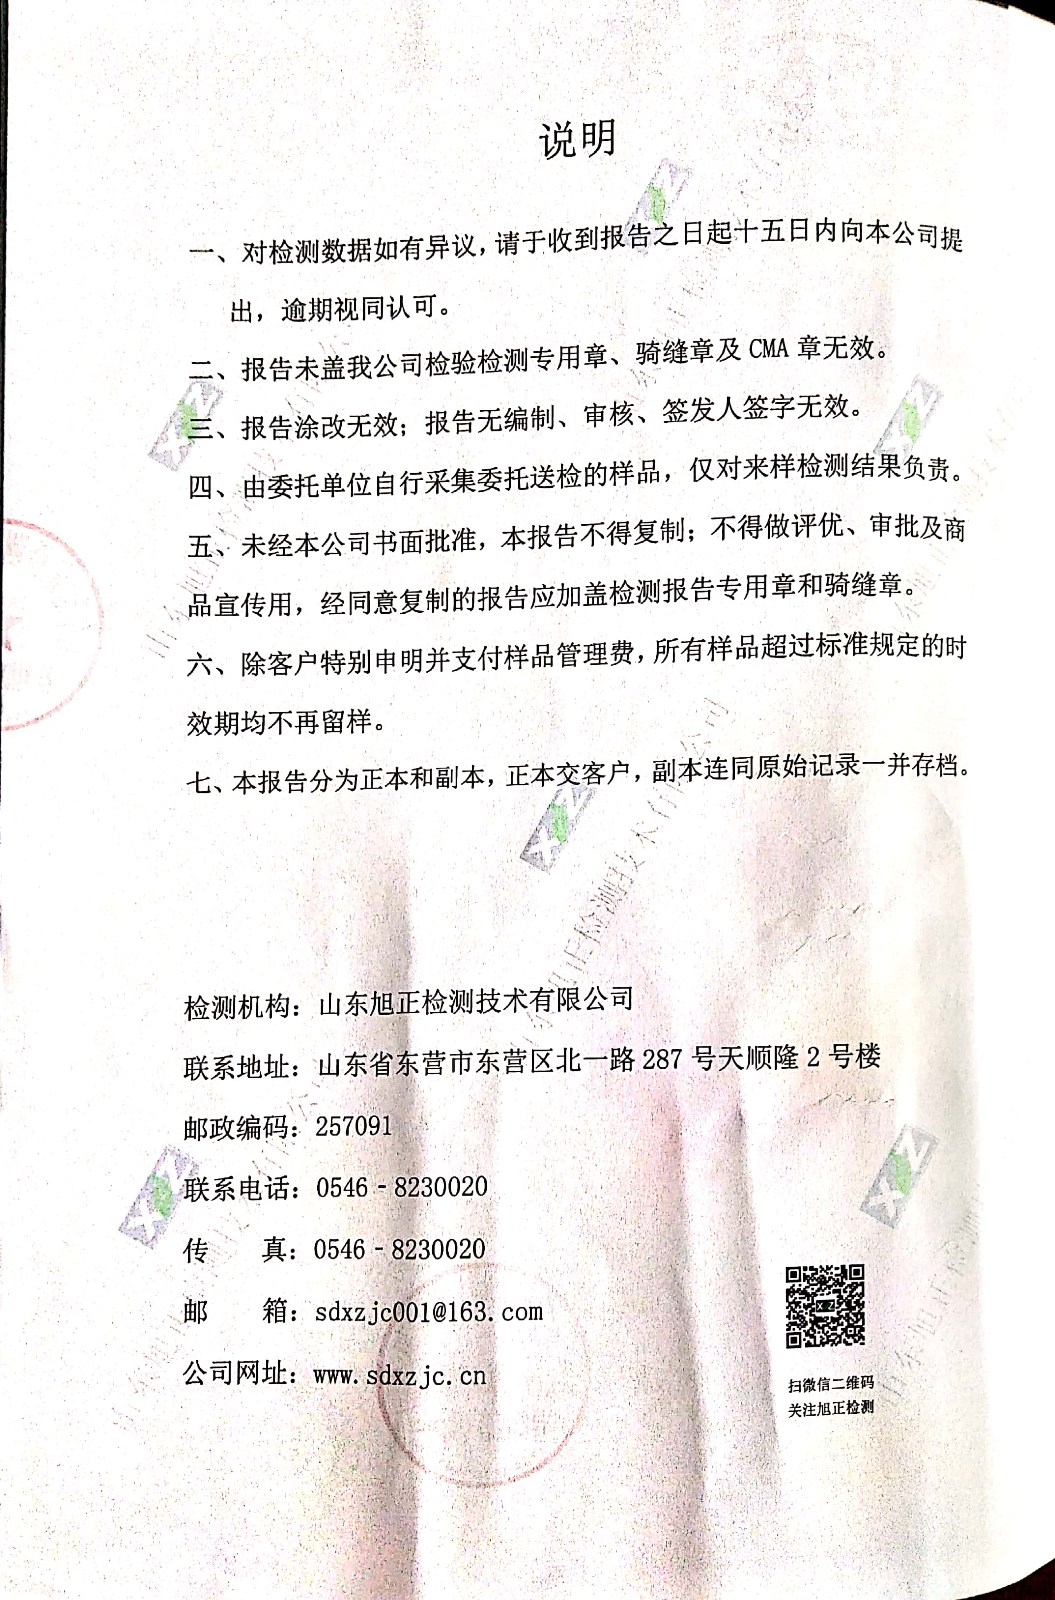 说明
一、对检测数据如有异议，请于收到报告之日起十五日内向本公司提
出，逾期视同认可。
二、报告未盖我公司检验检测专用章、骑缝章及 CMA 章无效。
三、报告涂改无效；报告无编制、审核、签发人签字无效。
四、由委托单位自行采集委托送检的样品，仅对来样检测结果负责。
五、未经本公司书面批准，本报告不得复制；不得做评优、审批及商
品宣传用，经同意复制的报告应加盖检测报告专用章和骑缝章。
六、除客户特别申明并支付样品管理费，所有样品超过标准规定的时
效期均不再留样。
七、本报告分为正本和副本，正本交客户，副本连同原始记录一并存档。
检测机构：山东旭正检测技术有限公司
联系地址：山东省东营市东营区北一路 287 号天顺隆 2 号楼
邮政编码：257091
联系电话：0546－8230020
传　　真：0546－8230020
邮　　箱：sdxzjc001@163.com
公司网址：www.sdxzjc.cn
扫微信二维码
关注旭正检测